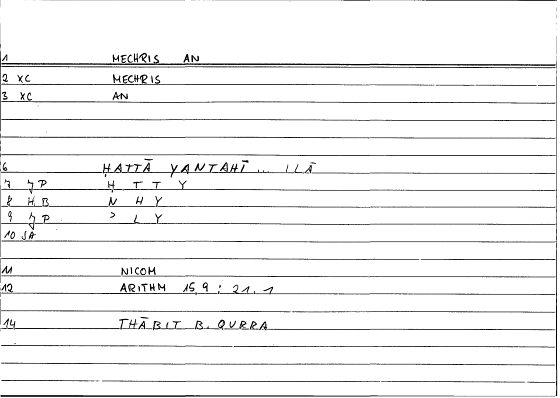 1 MECHRIS AN
2 XC MECHRIS
3 XC AN
6 ḤATTĀ YANTAHĪ ... ILĀ
7 JP Ḥ T T Y
8 HB N H Y
9 JP ʾ L Y
10 SA
11 NICOM
12 ARITHM 15,9 : 21.1
14 THĀBIT B. QURRA